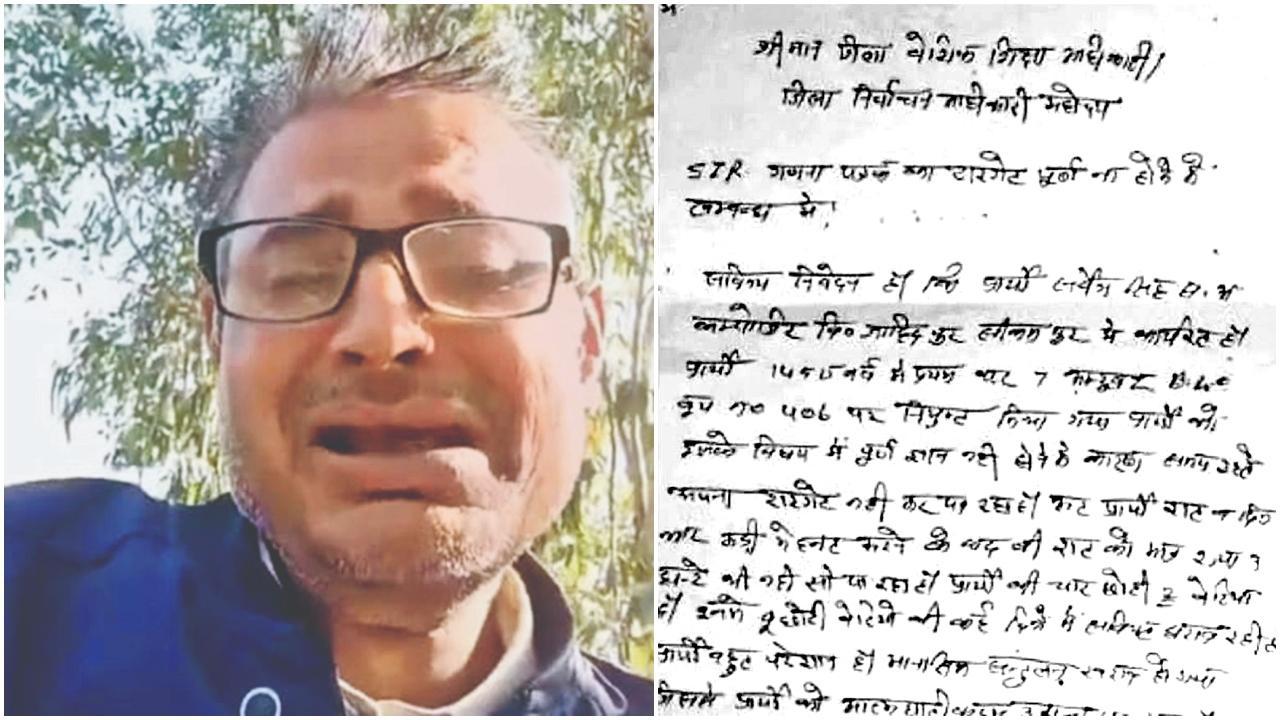 श्रीमान जिला बेसिक शिक्षा अधिकारी/
जिला निर्वाचन अधिकारी महोदय
SIR गणना पत्रक का टारगेट पूर्ण ना होने के
सम्बन्ध में।
सविनय निवेदन है कि प्रार्थी सर्वेश सिंह स.अ
कम्पोजिट वि० में कार्यरत है।
प्रार्थी वर्ष में प्रथम बार 7 अक्टूबर B.L.O
बूथ no 406 पर नियुक्त किया गया प्रार्थी को
इसके विषय में पूर्ण ज्ञान नही होने के कारण समय रहते
अपना टारगेट नही कर पा रहा हूँ प्रार्थी रात व दिन
कड़ी मेहनत करने के बाद भी रात को मात्र 2 या 3
घन्टे भी नही सो पा रहा हूँ प्रार्थी की चार छोटी 2 बेटियां
है इनमे 2 छोटी बेटियो की कई दिनो से खराब
प्रार्थी बहुत परेशान है। मानसिक सन्तुलन खराब हो गया
जिससे प्रार्थी को आत्मघाती कदम